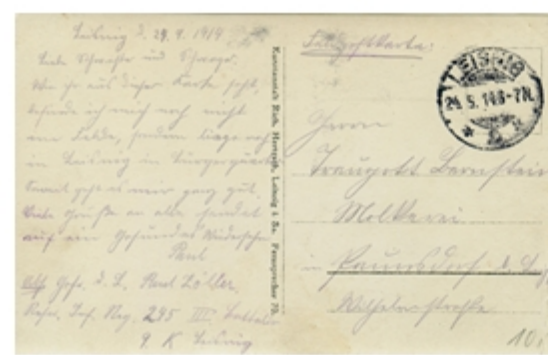 Leisnig d. 29. 9. 1914
Liebe Schwester und Schwager.
Wie Ihr aus dieser Karte seht,
befinde ich mich noch nicht
im Felde, sondern liege noch
in Leisnig im Bürgerquartier
Soweit geht es mir ganz gut.
Viele Grüße an alle sendet
auf ein Gesundes Wiedersehn
Paul
Gefr. d. L. Paul
Res. Inf. Reg. 245 III.
9. K Leisnig
Kunstanstalt Rich. Leisnig i. Sa. Fernsprecher 70.
Feldpostkarte:
LEISNIG
24. 9. 14. 6-7N.
Herrn
Traugott Bernstein
Molkerei
in Paunsdorf b. L.
Wilhelmstraße
10.